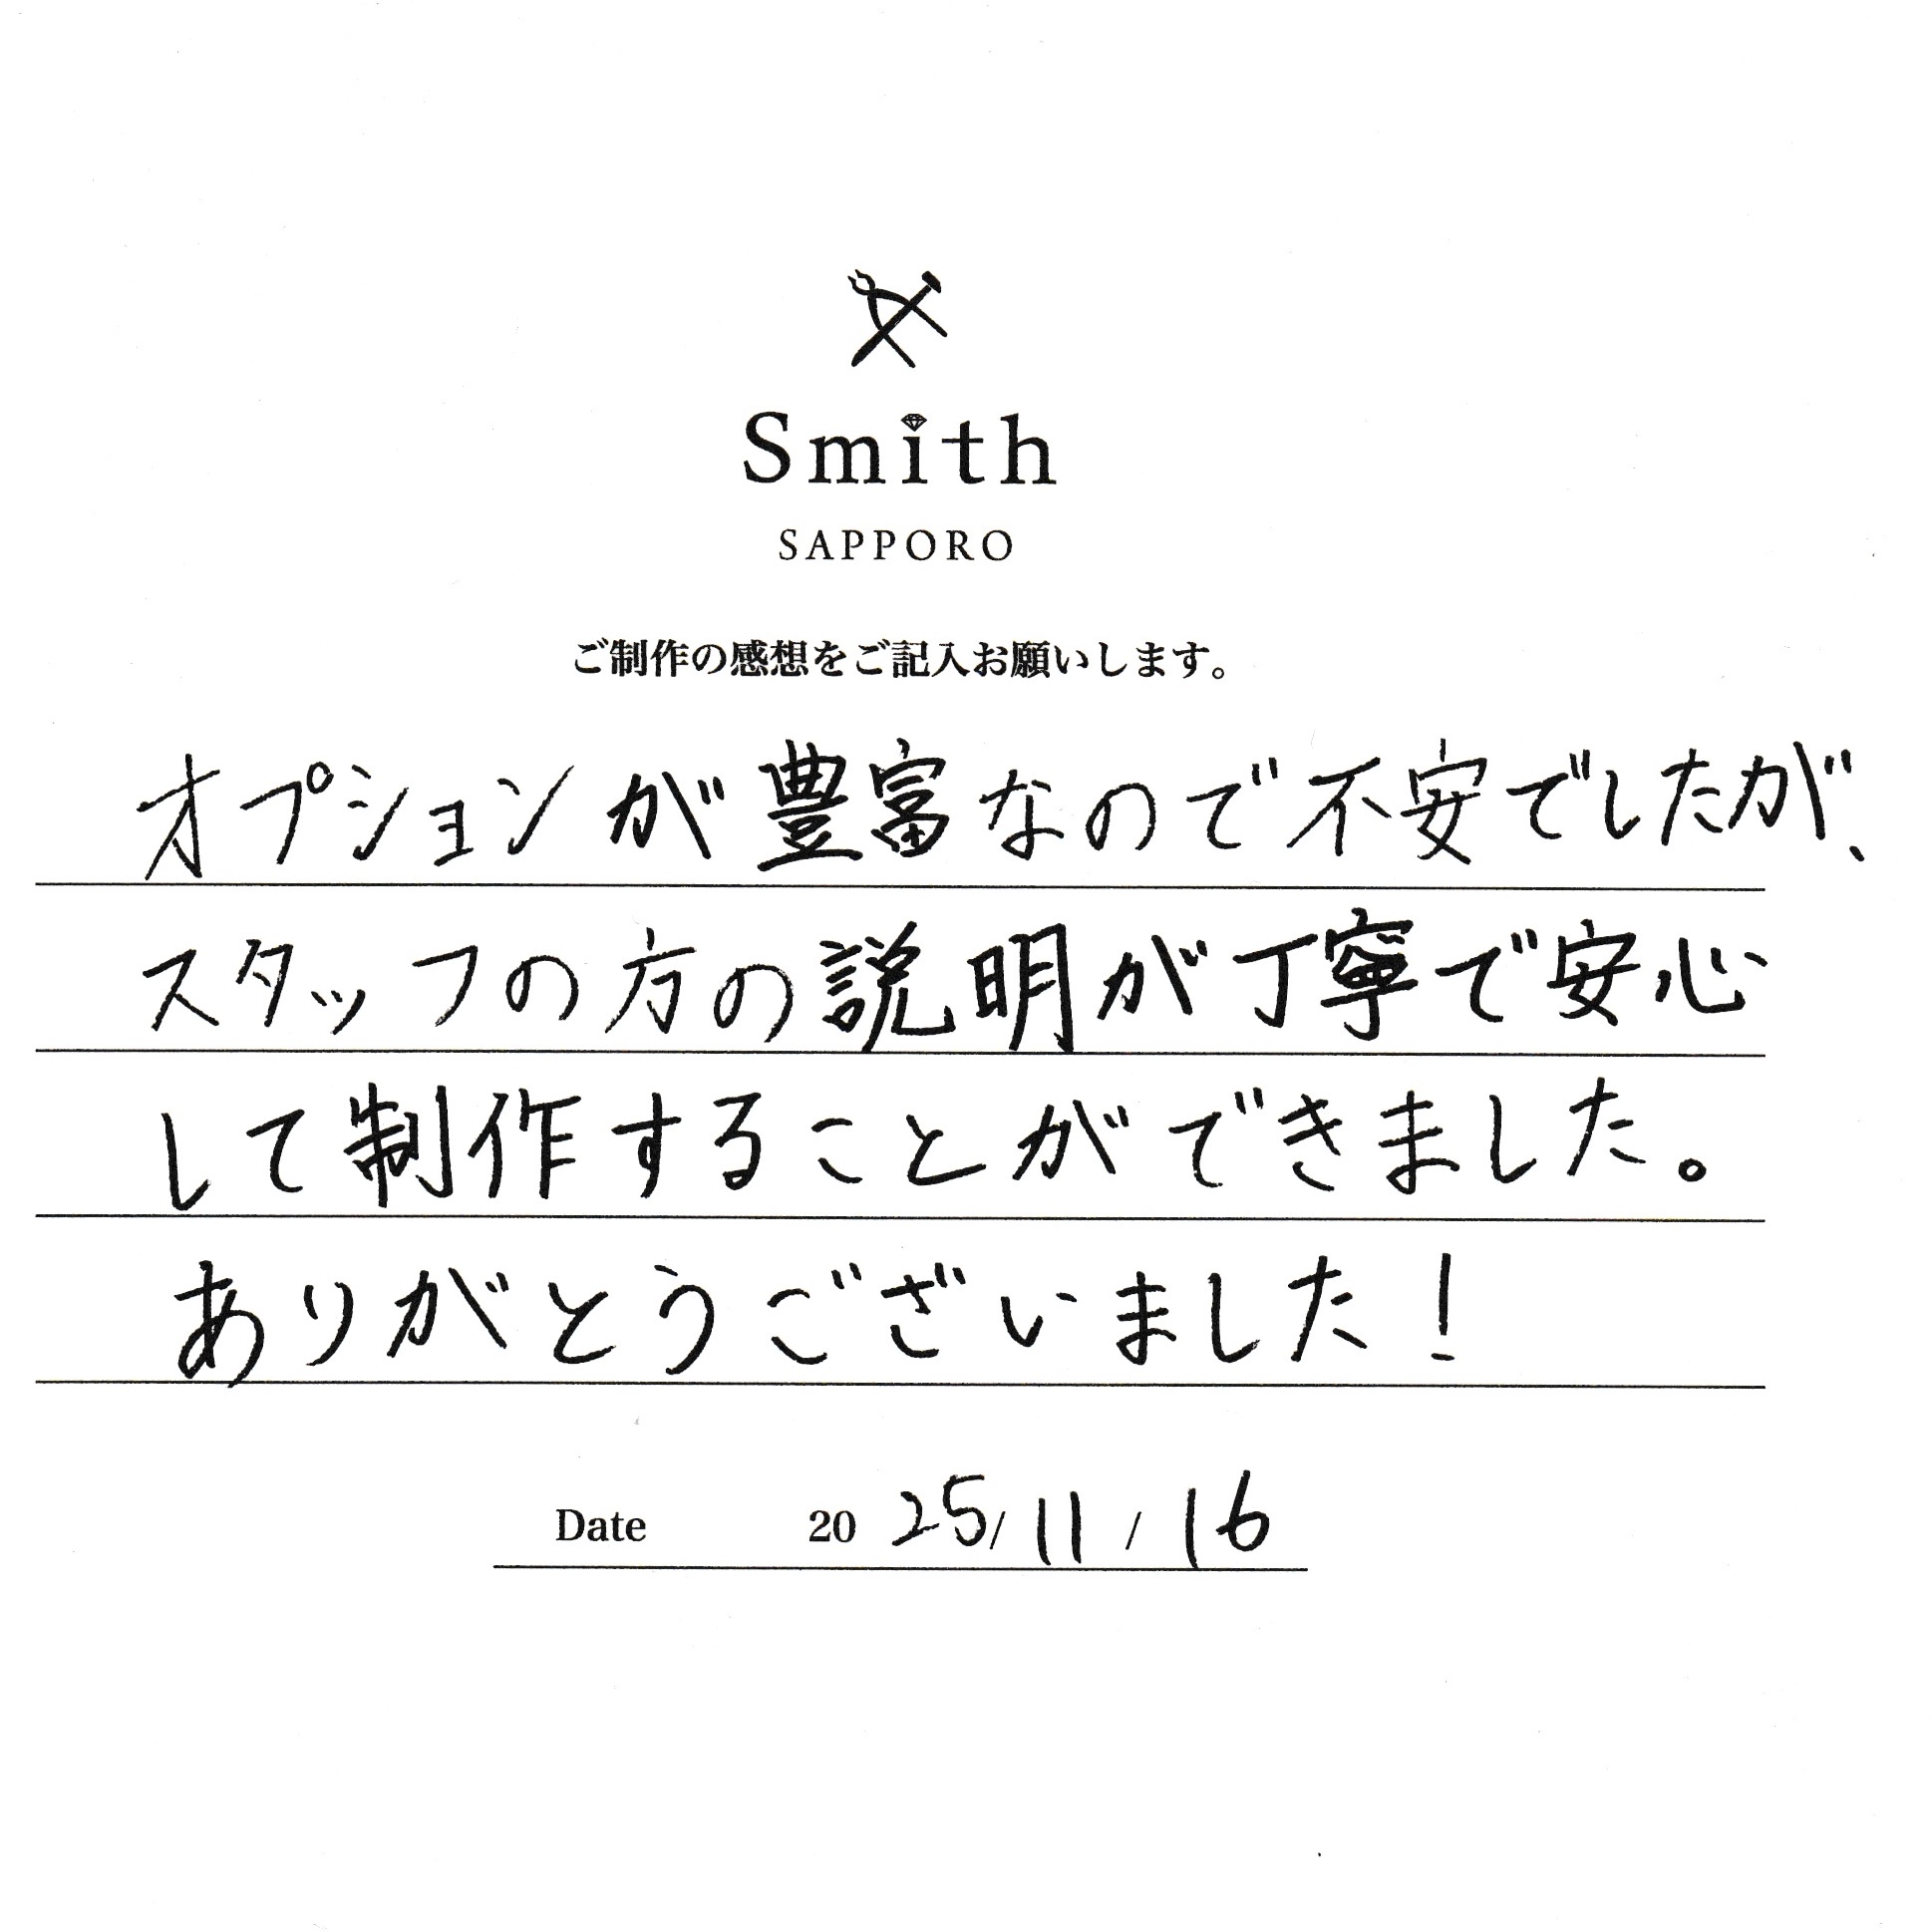 Smith
SAPPORO
ご制作の感想をご記入お願いします。
オプションが豊富なので不安でしたが、
スタッフの方の説明が丁寧で安心
して制作することができました。
ありがとうございました!
Date 20 25/11/16